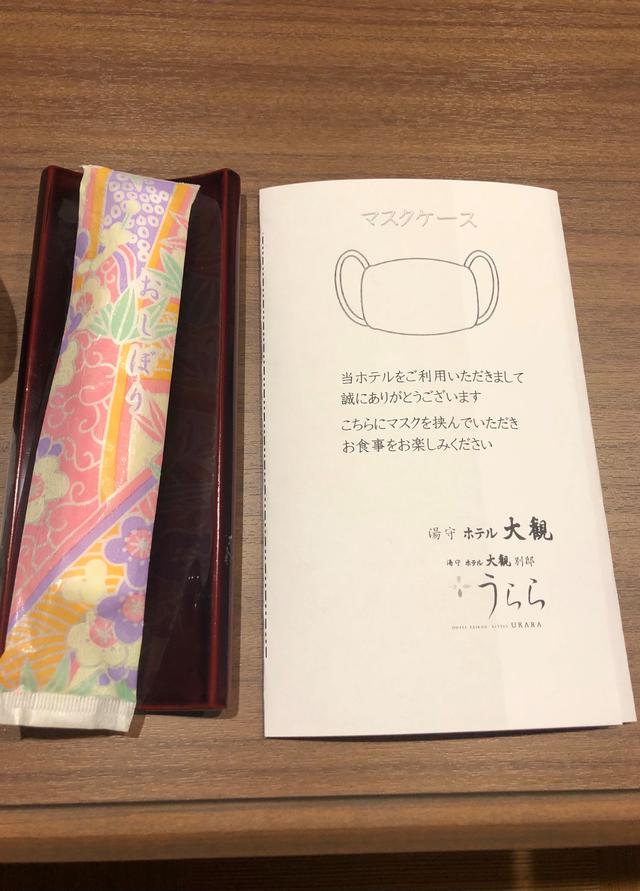 おしぼり
マスクケース
当ホテルをご利用いただきまして
誠にありがとうございます
こちらにマスクを挟んでいただき
お食事をお楽しみください
湯守 ホテル 大観
湯守 ホテル 大観 別邸
うらら
URARA